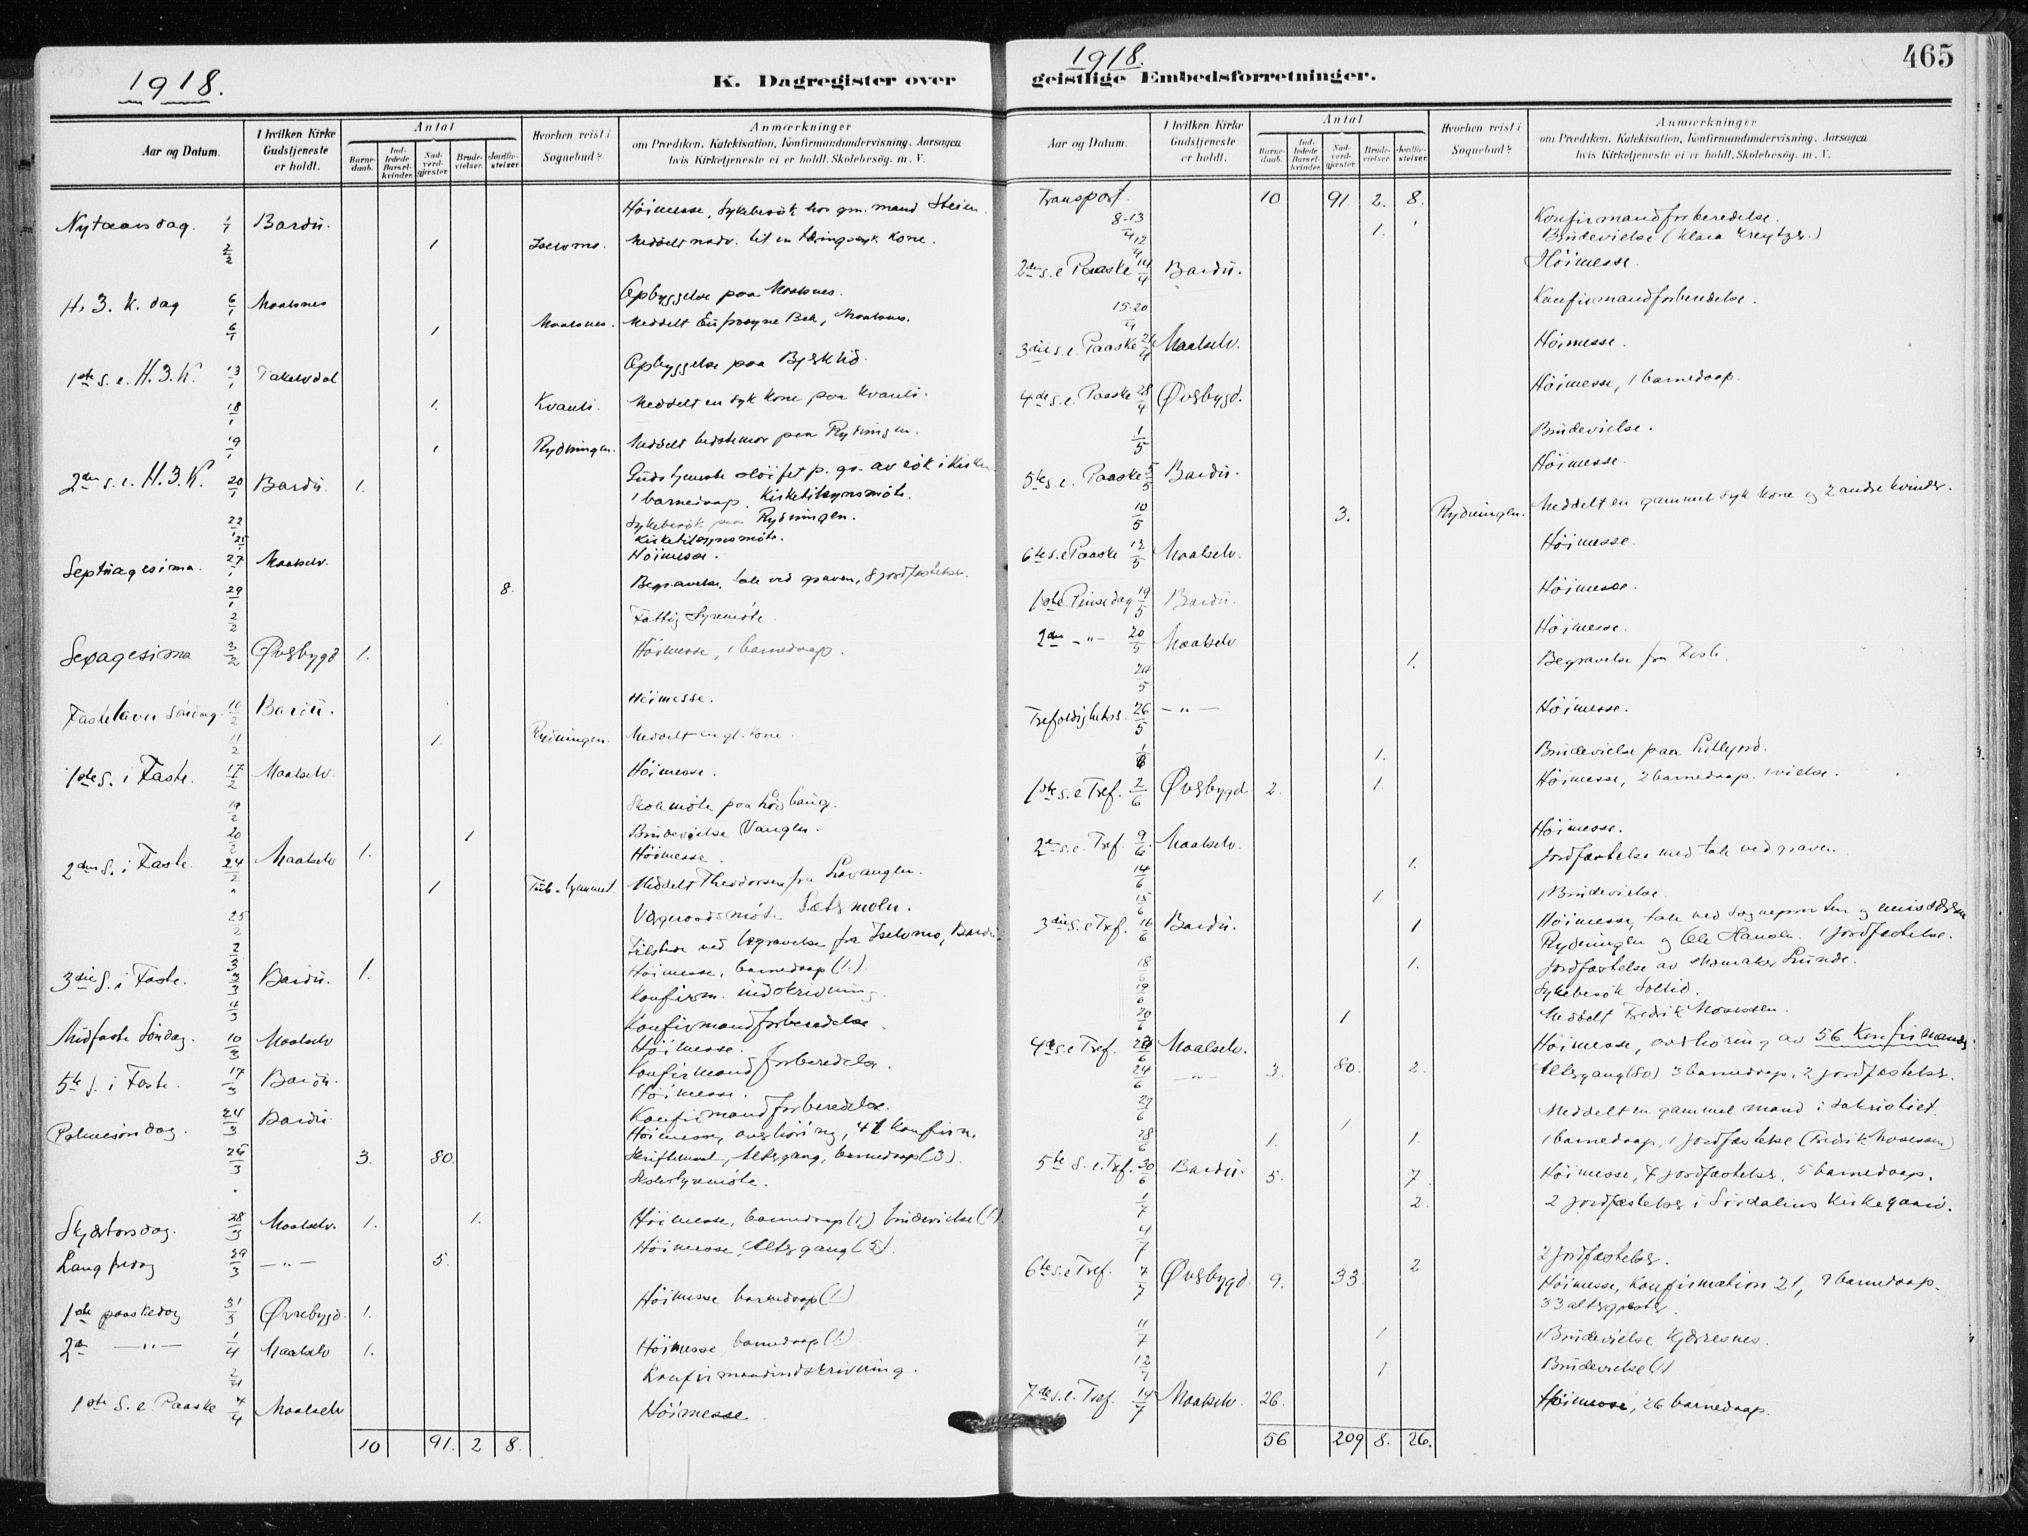 1918.
K. Dagregister over
Aar og Datum.
I hvilken Kirke Gudstjeneste er holdt.
Antal
Barnedaab.
Indledede Barselkvinder.
Nadverdgjæster.
Brudevielser.
Jordfæstelser.
Hvorhen reist i Sognebud?
Anmærkninger
om Prædiken, Katekisation, Konfirmandundervisning, Aarsagen
hvis Kirketjeneste ei er holdt, Skolebesøg, m. V.
Nytaarsdag. 1/1 Bardu. Höimesse, sykebesök hos gm. mand Steien.
2/2 1 Iselvmo. Meddelt nadv. til en tæringssyk kone.
H. 3. K. dag 6/1 Maalsnes Opbyggelse paa Maalsnes.
6/1 1 Maalsnes. Meddelt Eufrosyne Bek, Maalsnes.
1ste s. e. H. 3. K. 13/1 Takelvdal Opbyggelse paa Bjerklid.
18/1 1. Kvanli. Meddelt en syk kone paa Kvanli.
19/1 1 Rydningen. Meddelt bedstemor paa Rydningen.
2den s. e. H. 3. K. 20/1 Bardu. 1. Gudstjeneste slöifet p. gr. av rök i kirken
1 barnedaap. Kirketilsynsmöte.
22/1 Sykebesök paa Rydningen.
25/1 Kirketilsynsmöte.
Septuagesima. 27/1 Maalselv. Höimesse.
29/1 8. Begravelse, tale ved graven, 8 jordfæstelser.
2/2 Fattigstyremöte.
Sexagesima 3/2 Øvsbygd 1. Höimesse, 1 barnedaap.
Fastelavns söndag. 10/2 Bardu. Höimesse.
11/2 1. Rydningen. Meddelt en gl. kone.
1ste s. i Faste. 17/2 Maalselv Höimesse.
19/2 Skolemöte paa Lövhaug.
20/2 1 Brudevielse Vangen.
2den s. i Faste. 24/2 Maalselv 1. Höimesse.
" 1 Tub.-hjemmet. Meddelt Theodorsen fra Lavangen.
25/2 Vergeraadsmöte Sætermoen.
2/3 Tilstede ved begravelse fra Iselvmo, Bardu.
3die S. i Faste. 3/3 Bardu. 1. Höimesse, barnedaap (1.)
4/3 Konfirm. indskrivning.
Konfirmandforberedelse.
Midfaste Söndag. 10/3 Maalselv Höimesse.
Konfirmandforberedelse.
5te s. i Faste. 17/3 Bardu. Höimesse.
Konfirmandforberedelse.
Palmesöndag. 24/3 Bardu Höimesse, overhöring, 42 konfirm.
25/3 3. 80. Skriftemaal, Altergang, barnedaap (3).
Skolestyremöte.
Skjærtorsdag. 28/3 Maalselv. 1. 1. Höimesse, barnedaap (1.) brudevielse (1).
Langfredag 29/3 — " — 5. Höimesse, Altergang (5).
1ste paaskedag 31/3 Øvrebygd. 1. Höimesse barnedaap (1.)
2den — " — 1/4 Maalselv 1. Höimesse barnedaap (1.)
2/4 Konfirmandindskrivning.
1ste S. e. Paaske 7/4 Maalselv Höimesse.
10 91. 2 8.
1918.
465
geistlige Embedsforretninger.
Aar og Datum.
I hvilken Kirke Gudstjeneste er holdt.
Antal
Barnedaab.
Indledede Barselkvinder.
Nadverdgjæster.
Brudevielser.
Jordfæstelser.
Hvorhen reist i Sognebud?
Anmærkninger
om Prædiken, Katekisation, Konfirmandundervisning, Aarsagen
hvis Kirketjeneste ei er holdt, Skolebesøg, m. V.
Transport. 10 91 2. 8.
8-13/4 Konfirmandforberedelse.
12/4 1. Brudevielse (Klara Kreytzer.)
2den s. e. Paaske 14/4 Bardu. Höimesse.
15-20/4 Konfirmandforberedelse.
3die s. e. Paaske 21/4 Maalselv. Höimesse.
4de s. e. Paaske 28/4 Øvsbygd. Höimesse, 1 barnedaap.
1/5 Brudevielse.
5te s. e. Paaske 5/5 Bardu. Höimesse.
10/5 3. Rydningen. Meddelt en gammel syk kone og 2 andre kvinder.
6te s. e Paaske 12/5 Maalselv. Höimesse.
1ste Pinsedag 19/5 Bardu. Höimesse.
2den — " — 20/5 Maalselv Höimesse.
24/5 1. Begravelse fra Fosli.
Trefoldighetss. 26/5 — " — Höimesse.
1/6 1. Brudevielse paa Lillejord.
1ste s. e Tref. 2/6 Øvsbygd 2. 1. Höimesse, 2 barnedaap. 1 vielse.
2den s. e. Tref. 9/6 Maalselv. Höimesse.
14/6 1. Jordfæstelse med tale ved graven.
15/6 1 1 Brudevielse.
3die s. e Tref. 16/6 Bardu. 1 Höimesse, tale ved sogneprest og
Rydningen og Ole Hansen. 1 jordfæstelse.
18/6 1. Jordfæstelse av skomaker Lunde.
19/6 Sykebesök Soltid.
20/6 1 Meddelt Fredrik Mosessen.
4de s. e Tref. 23/6 Maalselv. Höimesse, overhöring av 56 Konfirmander.
24/6 — " — 3. 80. 2. Altergang (80) 3 barnedaap, 2 jordfæstelser.
27/6 1. Meddelt en gammel mand i sakristiet.
28/6 1. 1. 1 barnedaap, 1 jordfæstelse (Fredrik Mosessen)
5te S. e. Tref. 30/6 Bardu. 5. 7. Höimesse, 7 jordfæstelser, 5 barnedaap.
1/7 2. 2 jordfæstelser i Sördalens Kirkegaard.
4/7 2 2 jordfæstelser.
6te s. e Tref. 7/7 Øvsbygd. 9. 33. Höimesse, Konfirmation 21, 9 barnedaap.
33 altergjester.
11/7 1 1 Brudevielse Kjærresnes.
12/7 1 Brudevielse (1)
7de s. e. Tref. 14/7 Maalselv. 26. Höimesse, 26 barnedaap.
56 209 8. 26.